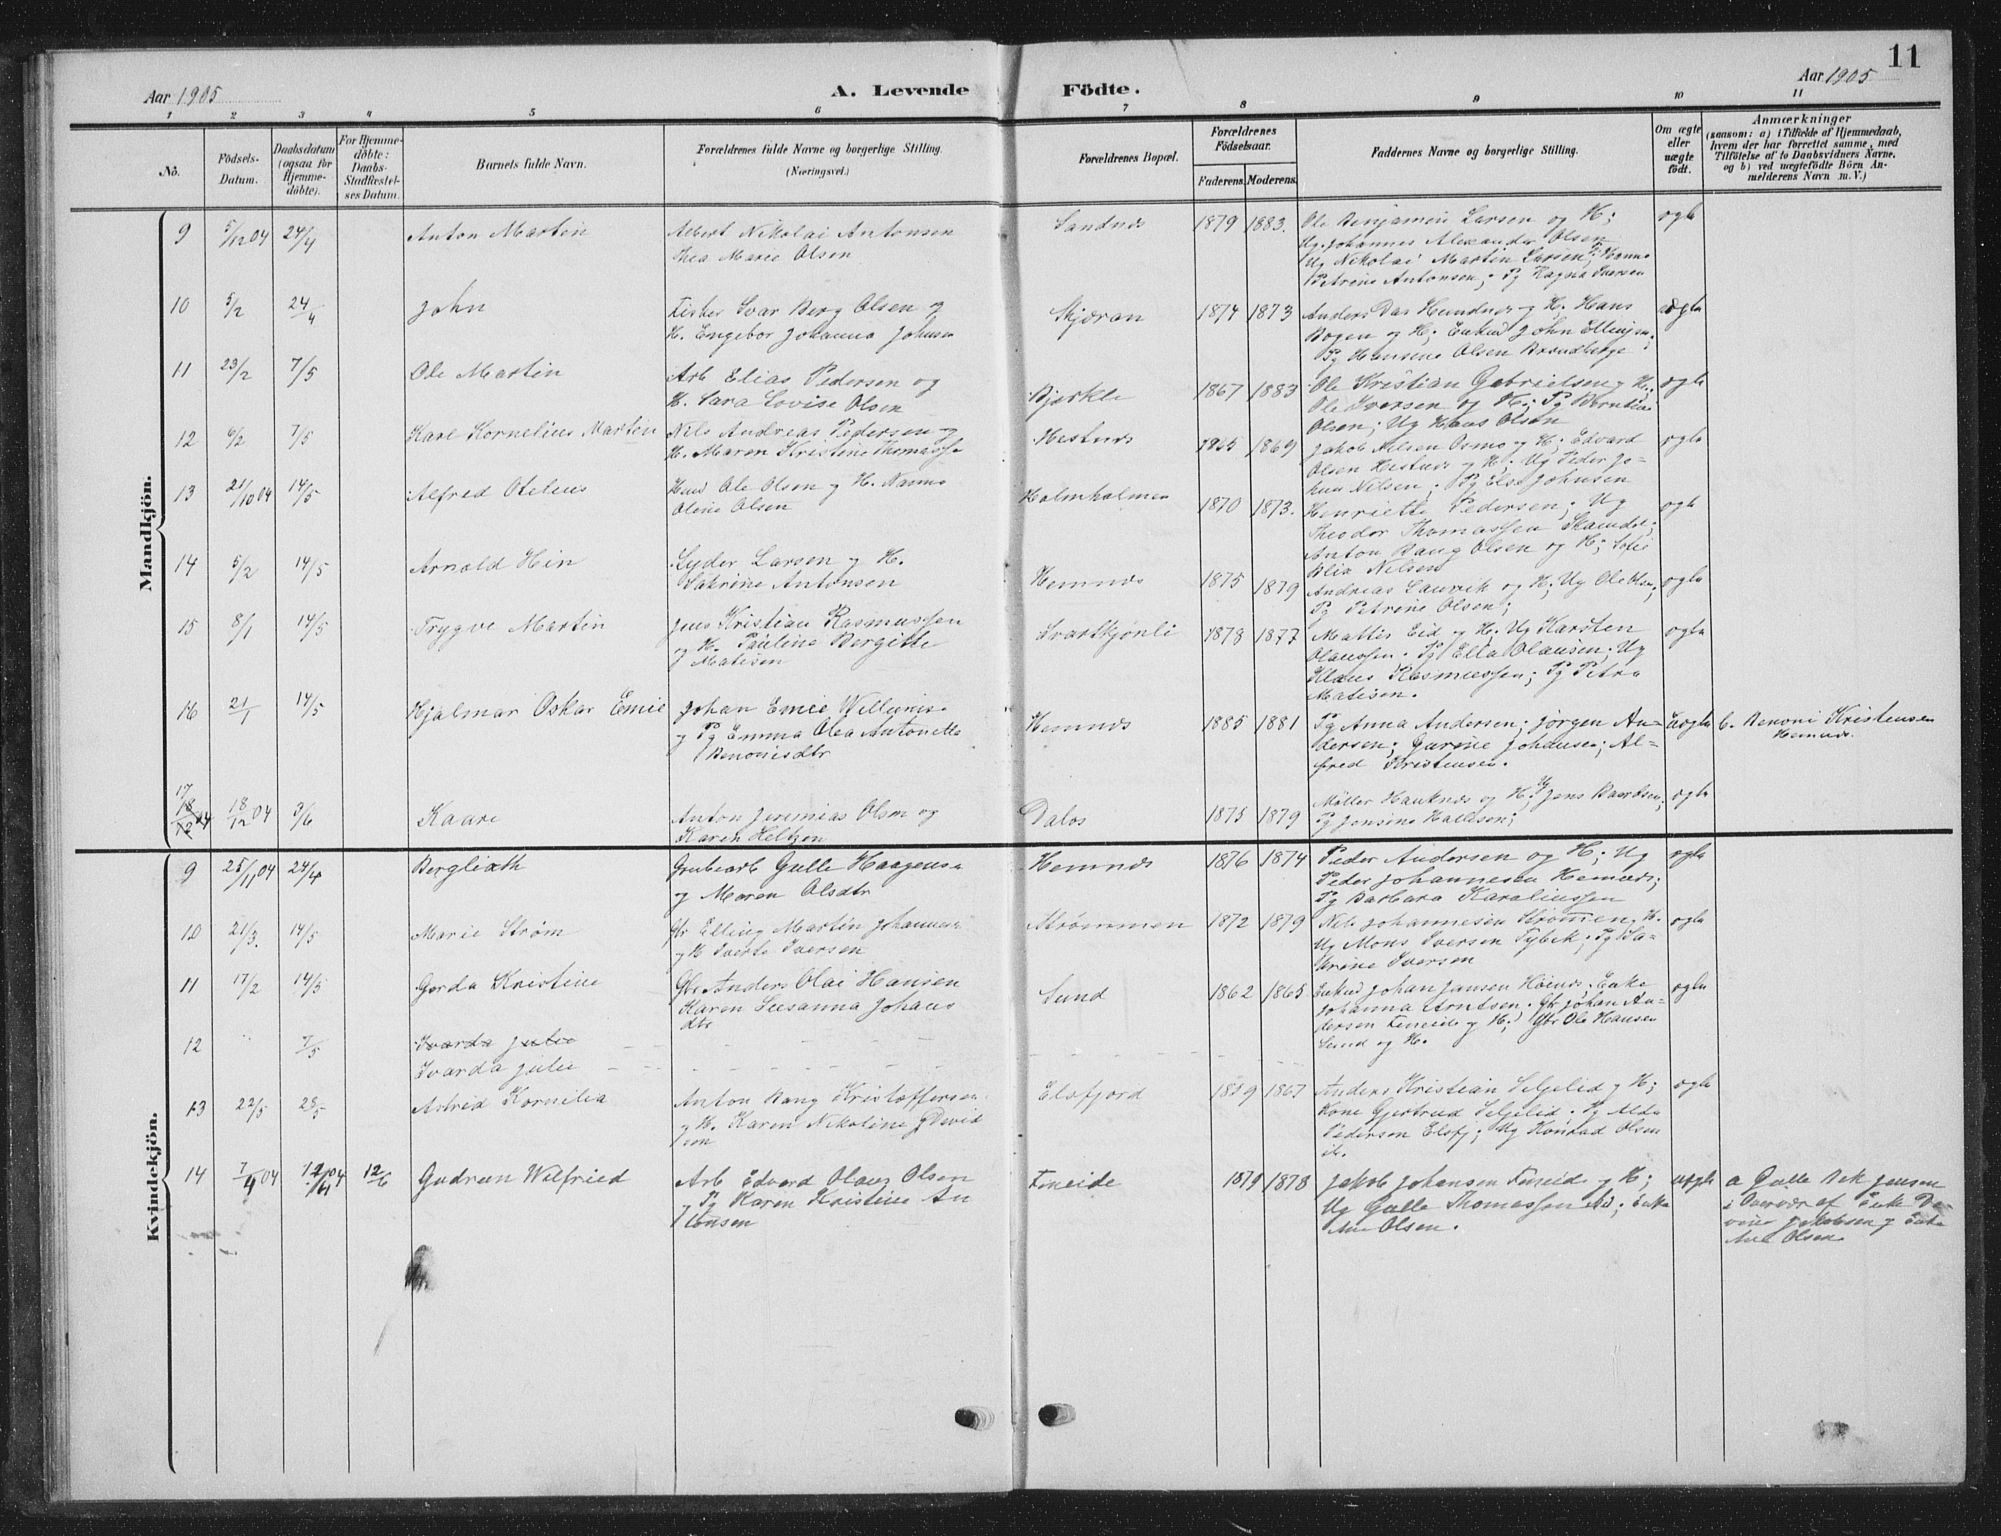 11
Aar 1905
A. Levende
Födte.
Aar 1905
1 2 3 4 5 6 7 8 9 10 11
No.
Födsels-
Datum.
Daabsdatum
(ogsaa for
Hjemme-
döbte).
For Hjemme-
döbte:
Daabs-
Stadfæstel-
ses Datum.
Barnets fulde Navn.
Forældrenes fulde Navne og borgerlige Stilling.
(Næringsvei.)
Forældrenes Bopæl.
Forældrenes
Födselsaar.
Faderens.
Moderens.
Faddernes Navne og borgerlige Stilling.
Om ægte
eller
uægte
födt.
Anmærkninger
(saasom: a) i Tilfælde af Hjemmedaab,
hvem der har forrettet samme, med
Tilföielse af to Daabsvidners Navne,
og b) ved uægtefödte Börn An-
melderens Navn m. V.)
Mandkjön.
9 5/12 04 24/4 Anton Martin
Albert Nikolai Antonsen
Thea Marie Olsen
Sandnes 1879 1883.
Ole Benjamin Larsen og H;
Ug. Johannes Alexander Olsen
Ug Nikolai Martin Larsen; Pg Hanna
Petrine Antonsen; Pg Ragna Iversen
ægte
10 5/2 24/4 John
Fisker Ivar Berg Olsen og
H. Engebor Johanna Johns
Skjæran 1874 1873
Anders Das Hemdnes og H. Hans
Bogen og H; Enkem John Ellingsen;
Pg Hansine Olsen Brendberge
ægte
11 23/2 7/5 Ole Martin
Arb Elias Pedersen og
H. Sara Lovise Olsen
Bjerkle 1867 1883
Ole Kristian Gabrielsen og H;
Ole Iversen og H; Pg Berntine
Olsen; Ug Hans Olsen
ægte
12 6/2 7/5 Karl Kornelius Martin
Nils Andreas Pedersen og
H. Maren Kristine Thomass
Hestnes 1865 1869
Jakob Nilsen Osmo og H; Edvard
Olsen Hestnes og H; Ug Peder Jo-
han Nilsen; Pg Else Johnsen
ægte
13 21/10 04 14/5 Alfred Otelius
Ole Olsen og H. Nanna
Oline Olsen
Holmholmen 1870 1873.
Henriette Pedersen; Ug
Theodor Thomassen
Anton Bang Olsen og H; Sofie
Alia Nilsen
ægte
14 5/2 14/5 Arnold Hein
Lyder Larsen og H.
Sakrine Antonsen
Hemnes 1875 1879
Andreas Laurvik og H; Ug Ole Olsen;
Pg Petrine Olsen;
ægte
15 8/1 14/5 Trygve Martin
Jens Kristian Rasmussen
og H. Pauline Bergitte
Matisen
Svartkjønli 1878 1877
Mattis Eid og H; Ug Karsten
Olaussen. Pg Ella Olausen; Ug
Klaus Rasmussen; Pg Petra
Matisen.
ægte
16 21/1 14/5 Hjalmar Oskar Emil
Johan Emil Willums
og Pg Emma Olea Antonette
Benonisdtr
Hemnes 1885 1881
Pg Anna Andersen; Jørgen An-
dersen; Gurine Johansen; Al-
fred Kristensen.
Uægte
b. Benoni Kristensen
Hemnes.
17 18/12 04 3/6 Kaare
Anton Jeremias Olsen og
Karen Heltzen
Dalos 1875 1879
Møller Hauknes og H; Ug Jens Baardsen;
Pg Jonsine
ægte
Kvindekjön.
9 25/11 04 24/4 Bergliath
Grubearb Gulle Haagens
og Maren Olsdtr
Hemnes 1876 1874
Peder Andersen og H; Ug
Peder Johannesen Hemnes;
Pg Barbara Karoliussen
ægte
10 21/3 14/5 Marie Strøm
Gbr Elling Martin Johannes
og H Iverte Iversen
Strømmen 1872 1879
Nils Johannesen Strømen, H.
Ug Mons Iversen Tybek; Pg Sa-
krine Iversen
ægte
11 17/2 14/5 Gerda Kristine
Gbr Anders Olai Hansen
Karen Susanna Johans
dtr
Sund 1862 1865
Enkem Johan Jansen Høines; Enke
Johanna Arntsen. Gbr Johan An-
dersen Fineide og H; Gbr Ole Hansen
Sund og H.
ægte
12 " 7/5 Ivarda Julie
Ivarda Julie
13 22/5 28/5 Astrid Kornelia
Anton Bang Kristoffersen
og H. Karen Nikoline David
sen
Elsfjord 1869 1867
Anders Kristian Seljelid og H;
Kone Gjertrud Seljelid. Pg Alda
Pedersen Elsfj; Ug Konrad Olsen
ib.
ægte
14 7/9 04 04 12/6 Gudrun Wilfried
Arb Edvard Olaus Olsen
og Pg Karen Kristine An
tonsen
Fineide 1879 1878
Jakob Johansen Fineide og H;
Ug Gulle Thomassen ibd; Enke
Ane Olsen.
uægte
a Gulle Bek Jensen
i Overvær af Enke
Jakobsen og Enke
Ane Olsen